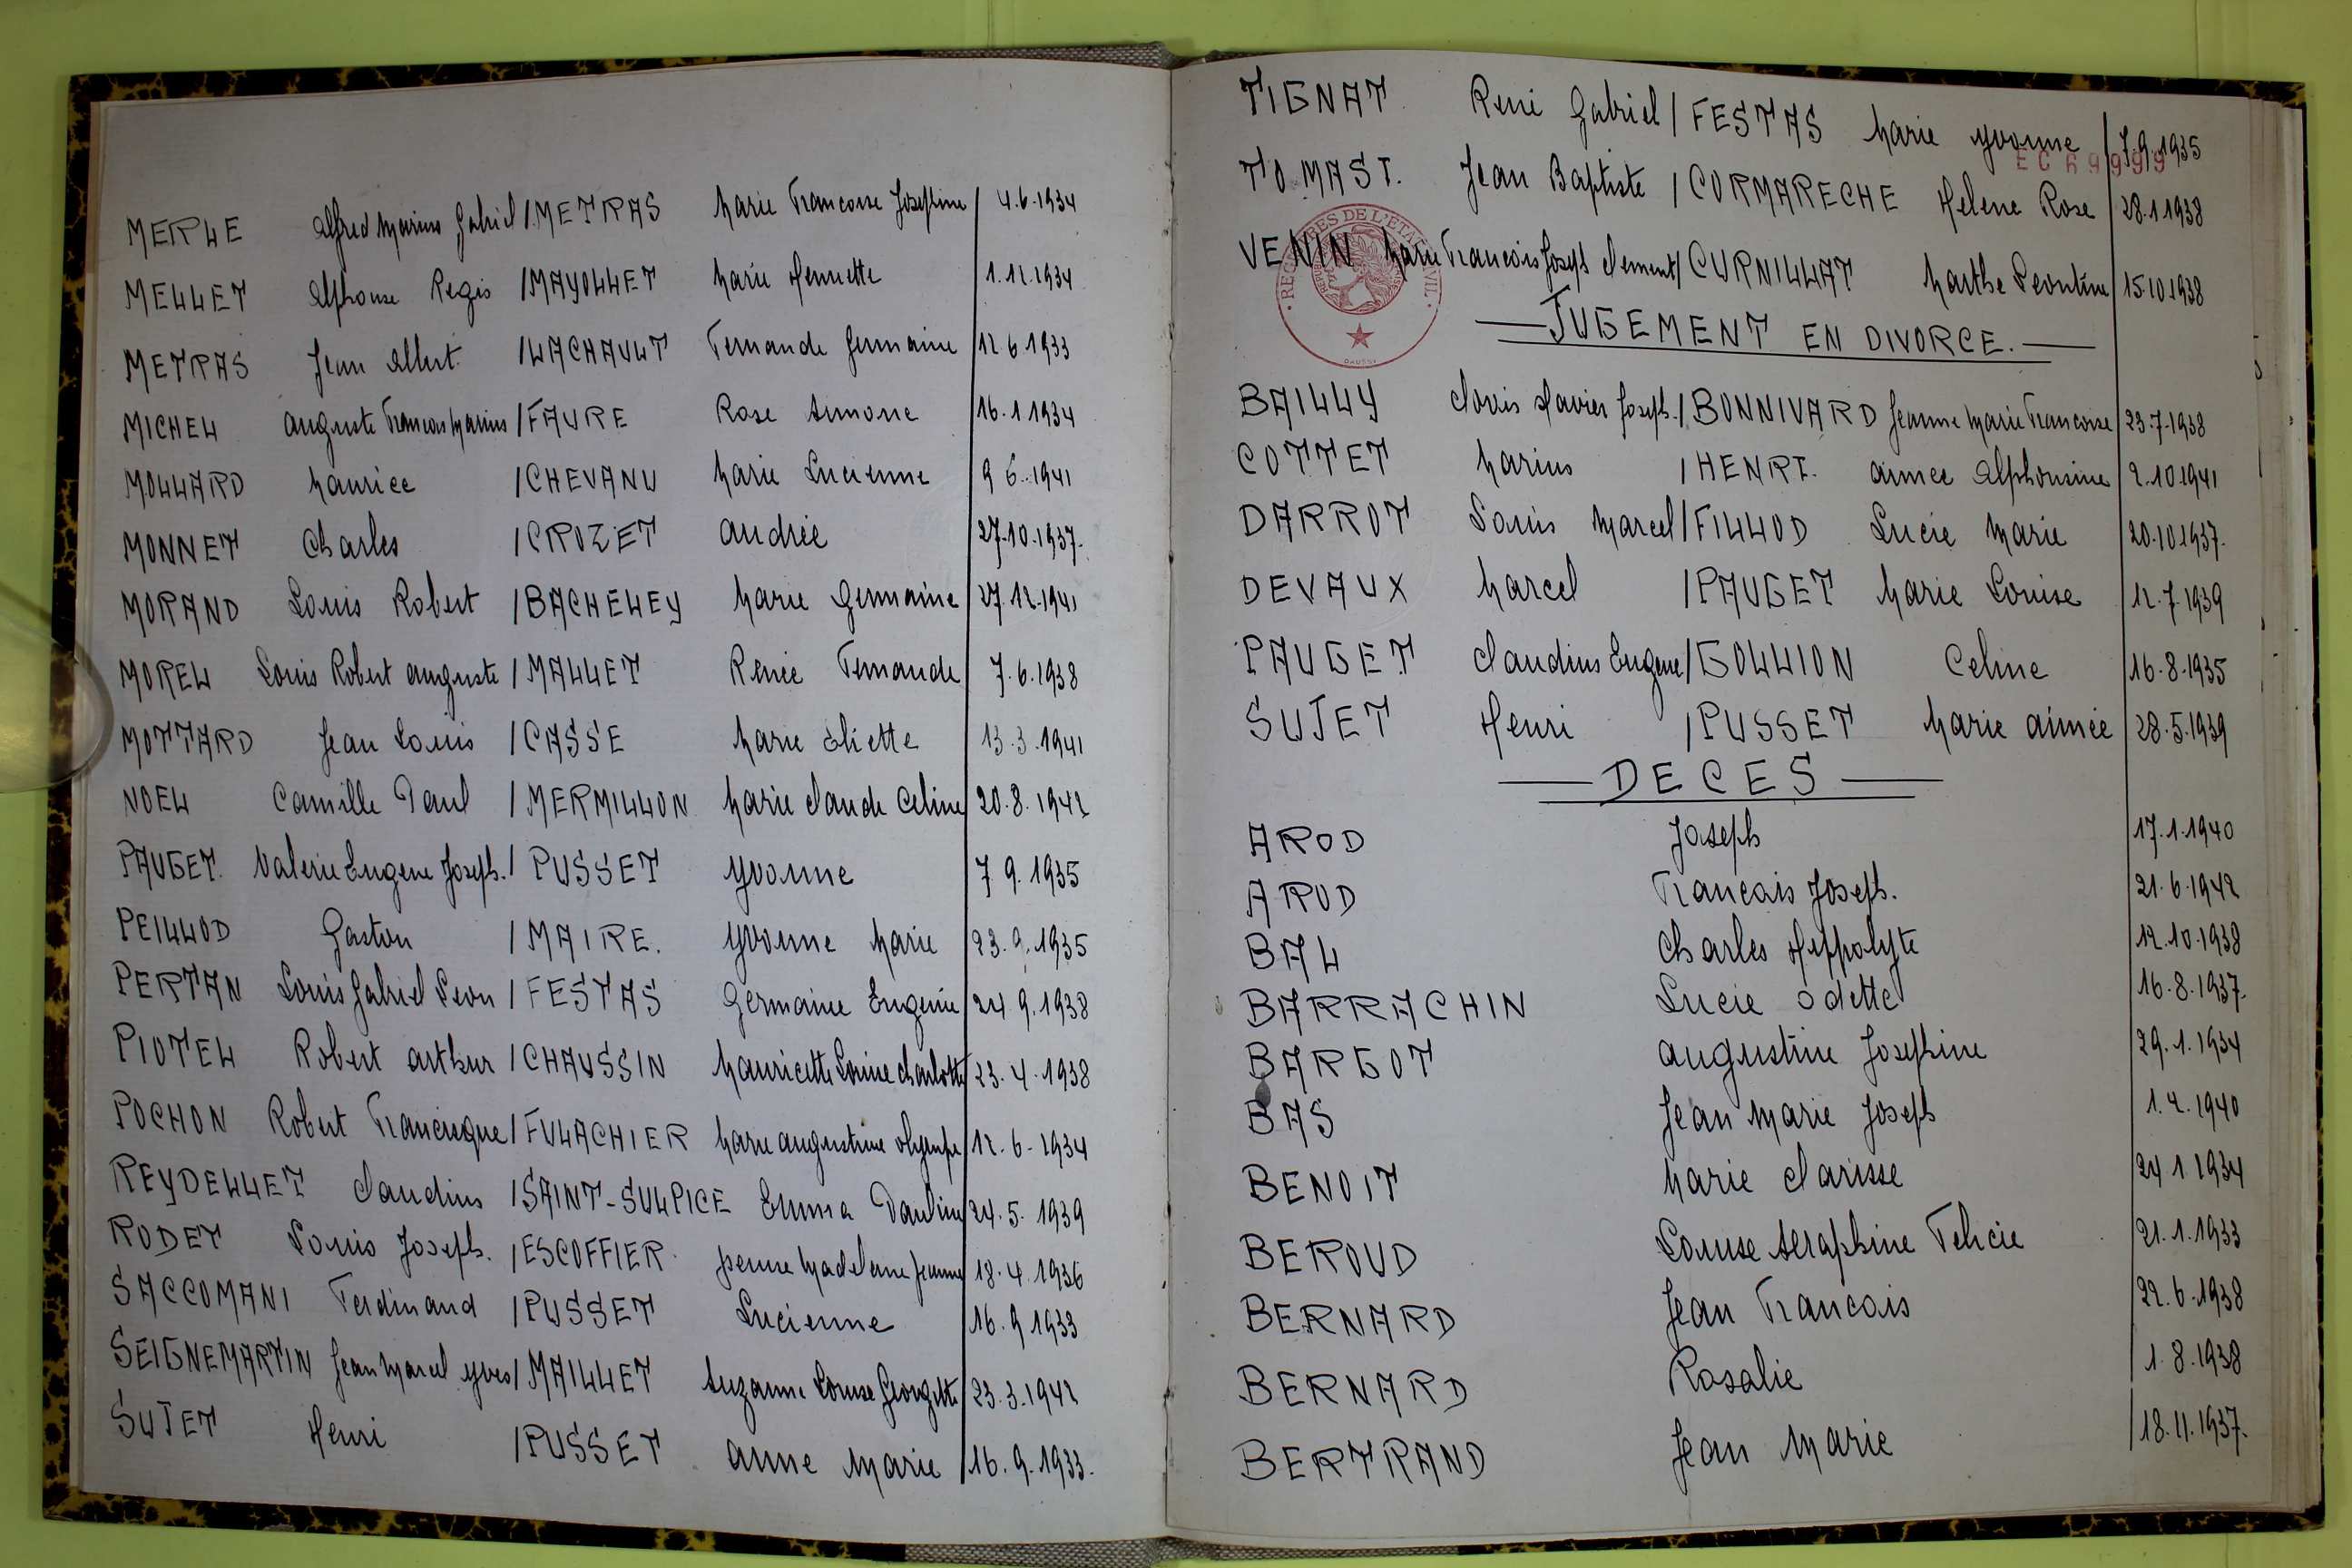 MERLE Alfred Marius Gabriel / METRAS Marie Francoise Josephine 4.6.1934
MELLET Alphonse Regis / MAYOLLET Marie Henriette 1.12.1934
METRAS Jean Albert / LACHAULT Fernande Germaine 12.6.1933
MICHEL Auguste Francois Marius / FAURE Rose Simone 16.1.1934
MOLLARD Maurice / CHEVANU Marie Lucienne 9.6.1941
MONNET Charles / CROZET Andrée 27.10.1937
MORAND Louis Robert / BACHELEY Marie Germaine 27.12.1941
MOREL Louis Robert Auguste / MALLET Renée Fernande 7.6.1938
MOTTARD Jean Louis / CASSE Marie Eliette 13.3.1941
NOEL Camille Paul / MERMILLON Marie Claude Celine 20.8.1942
PAUGET Valerie Eugene Joseph / PUSSET Yvonne 7.9.1935
PEILLOD Gaston / MAIRE. Yvonne Marie 23.9.1935
PERTAN Louis Gabriel Leon / FESTAS Germaine Eugenie 24.9.1938
PIOTEL Robert Arthur / CHAUSSIN Mauricette Louise Charlotte 23.4.1938
POCHON Robert Francisque / FULACHIER Marie Augustine Olympe 12.6.1934
REYDELLET Claudius / SAINT-SULPICE Emma Pauline 24.5.1939
RODET Louis Joseph. / ESCOFFIER Madeleine Jeanne 18.4.1936
SACCOMANI Ferdinand / PUSSET Lucienne 16.9.1933
SEIGNEMARTIN Jean Marcel Yves / MAILLET Suzanne Louise Georgette 23.3.1942
SUJET Henri / PUSSET Anne Marie 16.9.1933.
TIGNAT René Gabriel / FESTAS Marie Yvonne 7.9.1935
EC 69999
TOMASI. Jean Baptiste / CORMARECHE Helene Rose 28.1.1938
VENIN Marie Francois Joseph Clement / CURNILLAT Marthe Leontine 15.10.1938
JUGEMENT EN DIVORCE.
BAILLY Clovis Xavier Joseph. / BONNIVARD Jeanne Marie Francoise 23.7.1938
COTTET Marius / HENRI. Aimée Alphonsine 2.10.1941
DARROT Louis Marcel / FILLOD Lucie Marie 20.10.1937.
DEVAUX Marcel / PAUGET Marie Louise 12.7.1939
PAUGET Claudius Eugene / GOLLION Celine 16.8.1935
SUJET Henri / PUSSET Marie Aimée 28.5.1939
DECES
AROD Joseph 17.1.1940
AROD Francois Joseph. 21.6.1942
BAL Charles Hippolyte 12.10.1938
BARRACHIN Lucie Odette 16.8.1937.
BARGOT Augustine Josephine 29.1.1934
BAS Jean Marie Joseph 1.2.1940
BENOIT Marie Clarisse 24.1.1934
BEROUD Louise Seraphine Felicie 21.1.1933
BERNARD Jean Francois 22.6.1938
BERNARD Rosalie 1.8.1938
BERTRAND Jean Marie 18.11.1937.